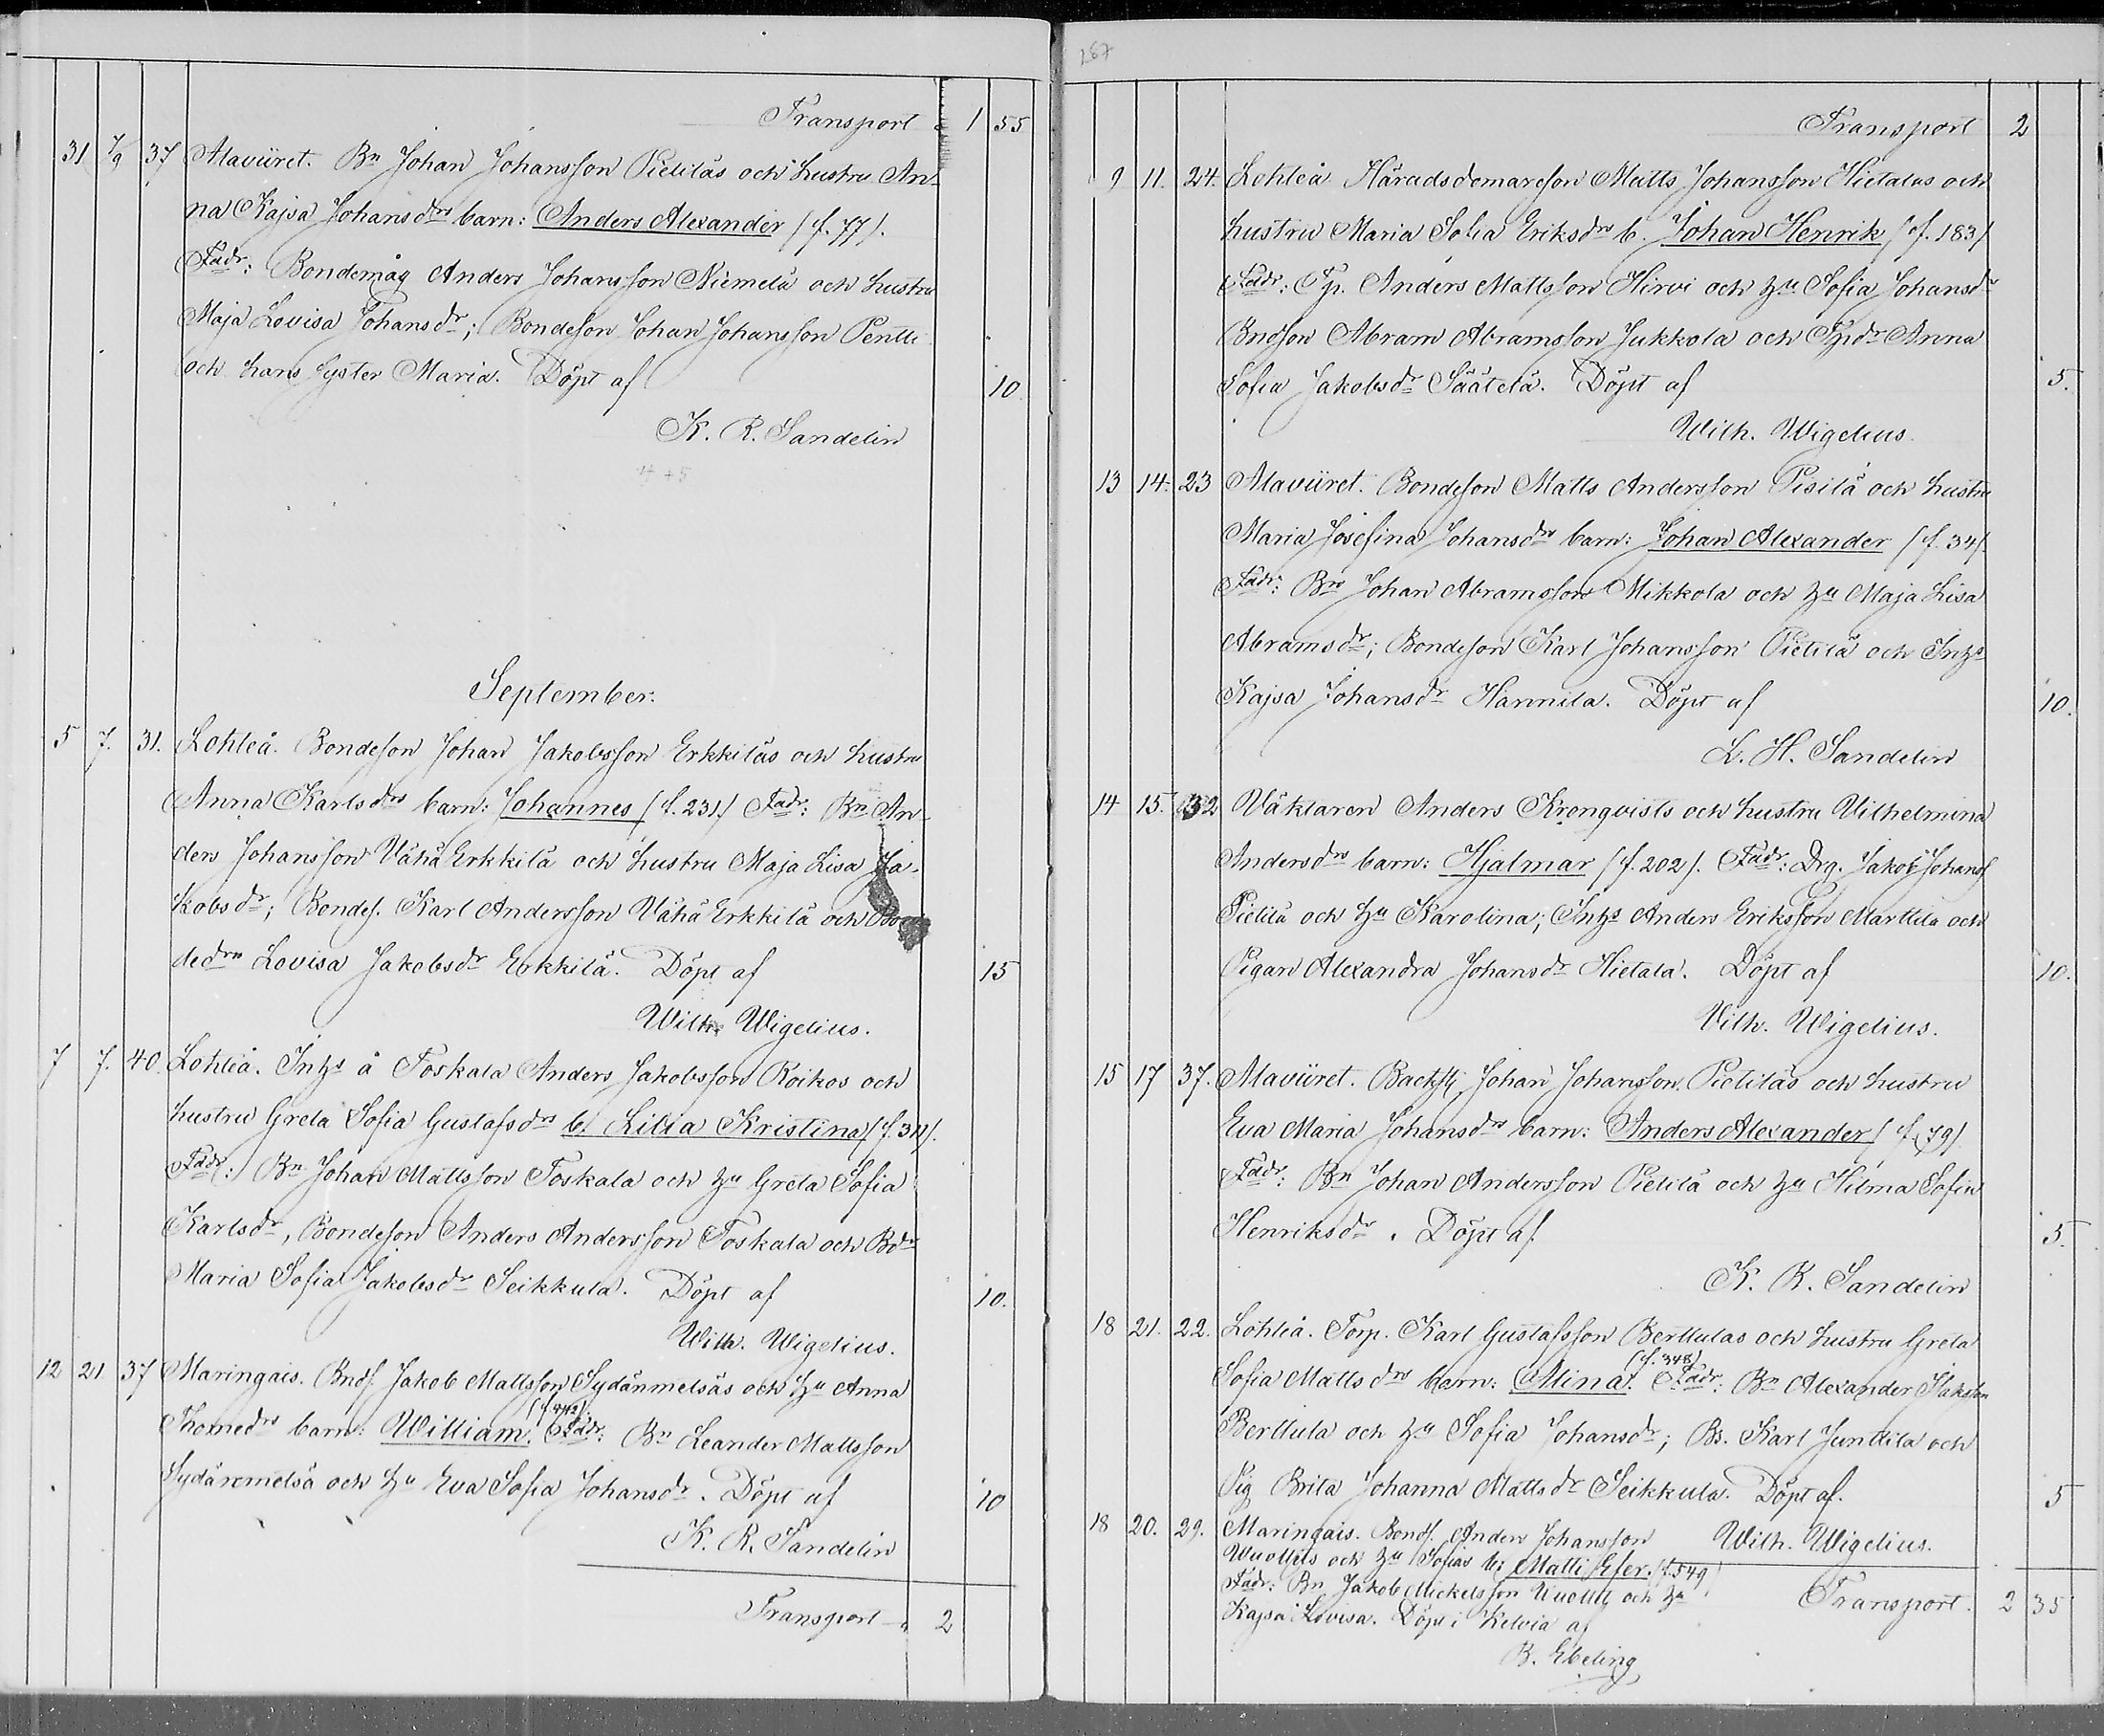 Transport 1 55
31 7/9 37 Alaviiret. Bn Johan Johansson Pietiläs och hustru An-
na Kajsa Johansdrs barn: Anders Alexander (f. 77).
Fadr: Bondemåg Anders Johansson Niemelä och hustru
Maja Lovisa Johansdr; Bondeson Johan Johansson Pentti
och hans syster Maria. Döpt af 10
K. R. Sandelin
September.
5 7. 31. Lohteå. Bondeson Johan Jakobsson Erkkiläs och hustru
Anna Karlsdrs barn: Johannes (f. 231.) Fadr: Bn An-
ders Johansson Vähä Erkkilä och hustru Maja Lisa Ja-
kobsdr; Bondes. Karl Andersson Vähä Erkkilä och Bon
dedrn Lovisa Jakobsdr Erkkilä. Döpt af 15
Wilh. Wigelius.
7 7. 40. Lohteå. Inhs å Toskala Anders Jakobsson Roikos och
hustru Greta Sofia Gustafsdrs b. Lilia Kristina (f. 311).
Fadr: Bn Johan Mattsson Toskala och hu Greta Sofia
Karlsdr, Bondeson Anders Andersson Toskala och Bdr
Maria Sofia Jakobsdr Seikkula. Döpt af 10.
Wilh. Wigelius.
12 21 37 Maringais. Bndf. Jakob Mattsson Sydänmetsäs och hu Anna
Thomedrs barn: William. (f. 442). Fadr: Bn Leander Mattsson
Sydänmetsä och hu Eva Sofia Johansdr. Döpt af 10
K. R. Sandelin
Transport 2
267
Transport 2
9 11. 24. Lohteå Häradsdomareson Matts Johansson Hietalas och
hustru Maria Sofia Eriksdrs b. Johan Henrik (f. 183)
Fadr: Tp. Anders Mattsson Hirvi och hu Sofia Johansdr
Bndson Abram Abramsson Jukkola och Tpdr Anna
Sofia Jakobsdr Säätelä. Döpt af 5.
Wilh. Wigelius.
13 14. 23 Alaviiret. Bondeson Matts Andersson Pisilä och hustru
Maria Josefina Johansdrs barn: Johan Alexander (f. 34).
Fadr: Bn Johan Abramsson Mikkola och hu Maja Lisa
Abramsdr; Bondeson Karl Johansson Pietilä och Inhs
Kajsa Johansdr Hannila. Döpt af 10.
L. H. Sandelin
14 15. 32 Väktaren Anders Kronqvists och hustru Vilhelmina
Andersdrs barn: Hjalmar (f. 202). Fadr: Drg. Jakob Johansf
Pietilä och hu Karolina; Inhs Anders Eriksson Marttila och
Pigan Alexandra Johansdr Hietala. Döpt af 10.
Vilh. Wigelius.
15 17 37. Alaviiret. Backstj. Johan Johansson Pietiläs och hustru
Eva Maria Johansdrs barn: Anders Alexander (f. 79).
Fadr: Bn Johan Andersson Pietilä och hu Hilma Sofia
Henriksdr. Döpt af 5.
K. R. Sandelin
18 21. 22. Lohteå. Torp. Karl Gustafsson Berttulas och hustru Greta
Sofia Mattsdrs barn: Mina. (f. 348) Fadr: Bn Alexander
Berttula och hu Sofia Johansdr; Bs. Karl Junttila och
Pig Brita Johanna Mattsdr Seikkula. Döpt af. 5
Wilh. Wigelius.
18 20. 29. Maringais. Bondf. Anders Johansson
Wuoltits och hu Sofias b: Matti Eser. (f. 549)
Fadr: Bn Jakob Mickelsson Vuoltti och hu
Kajsa Lovisa. Döpt i Kelviå af
B. Ebeling
Transport. 2 35